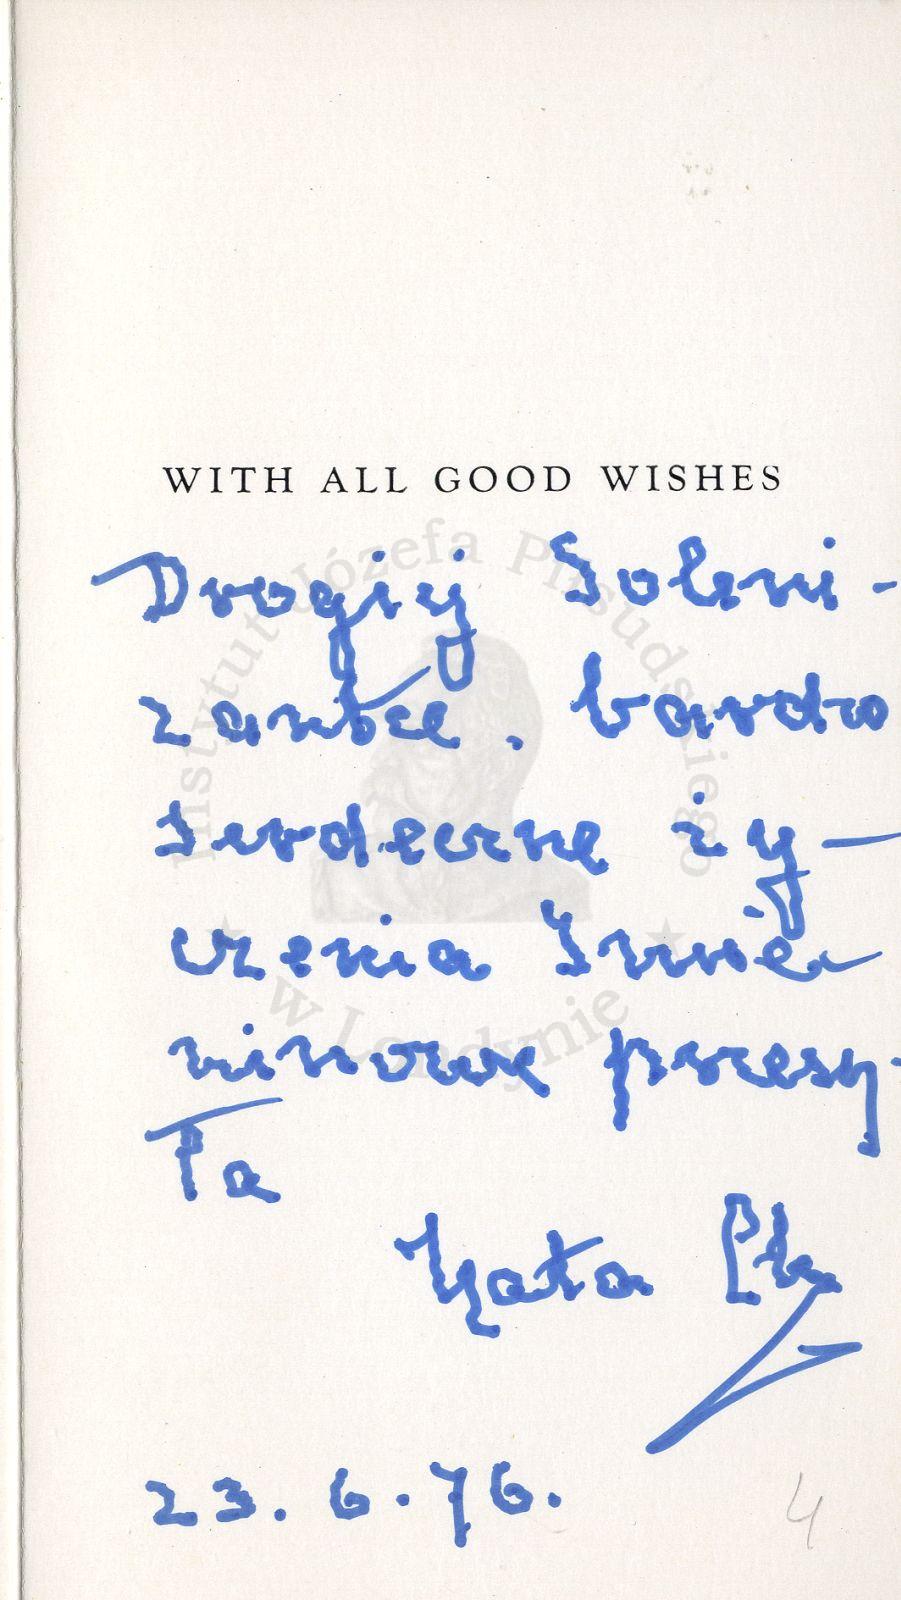 WITH ALL GOOD WISHES
Drogiej Soleni-
zantce, bardzo
serdeczne ży-
czenia Imie
ninowe przesy-
ła
23.6.76.
4
Instytut Józefa Piłsudskiego
w Londynie